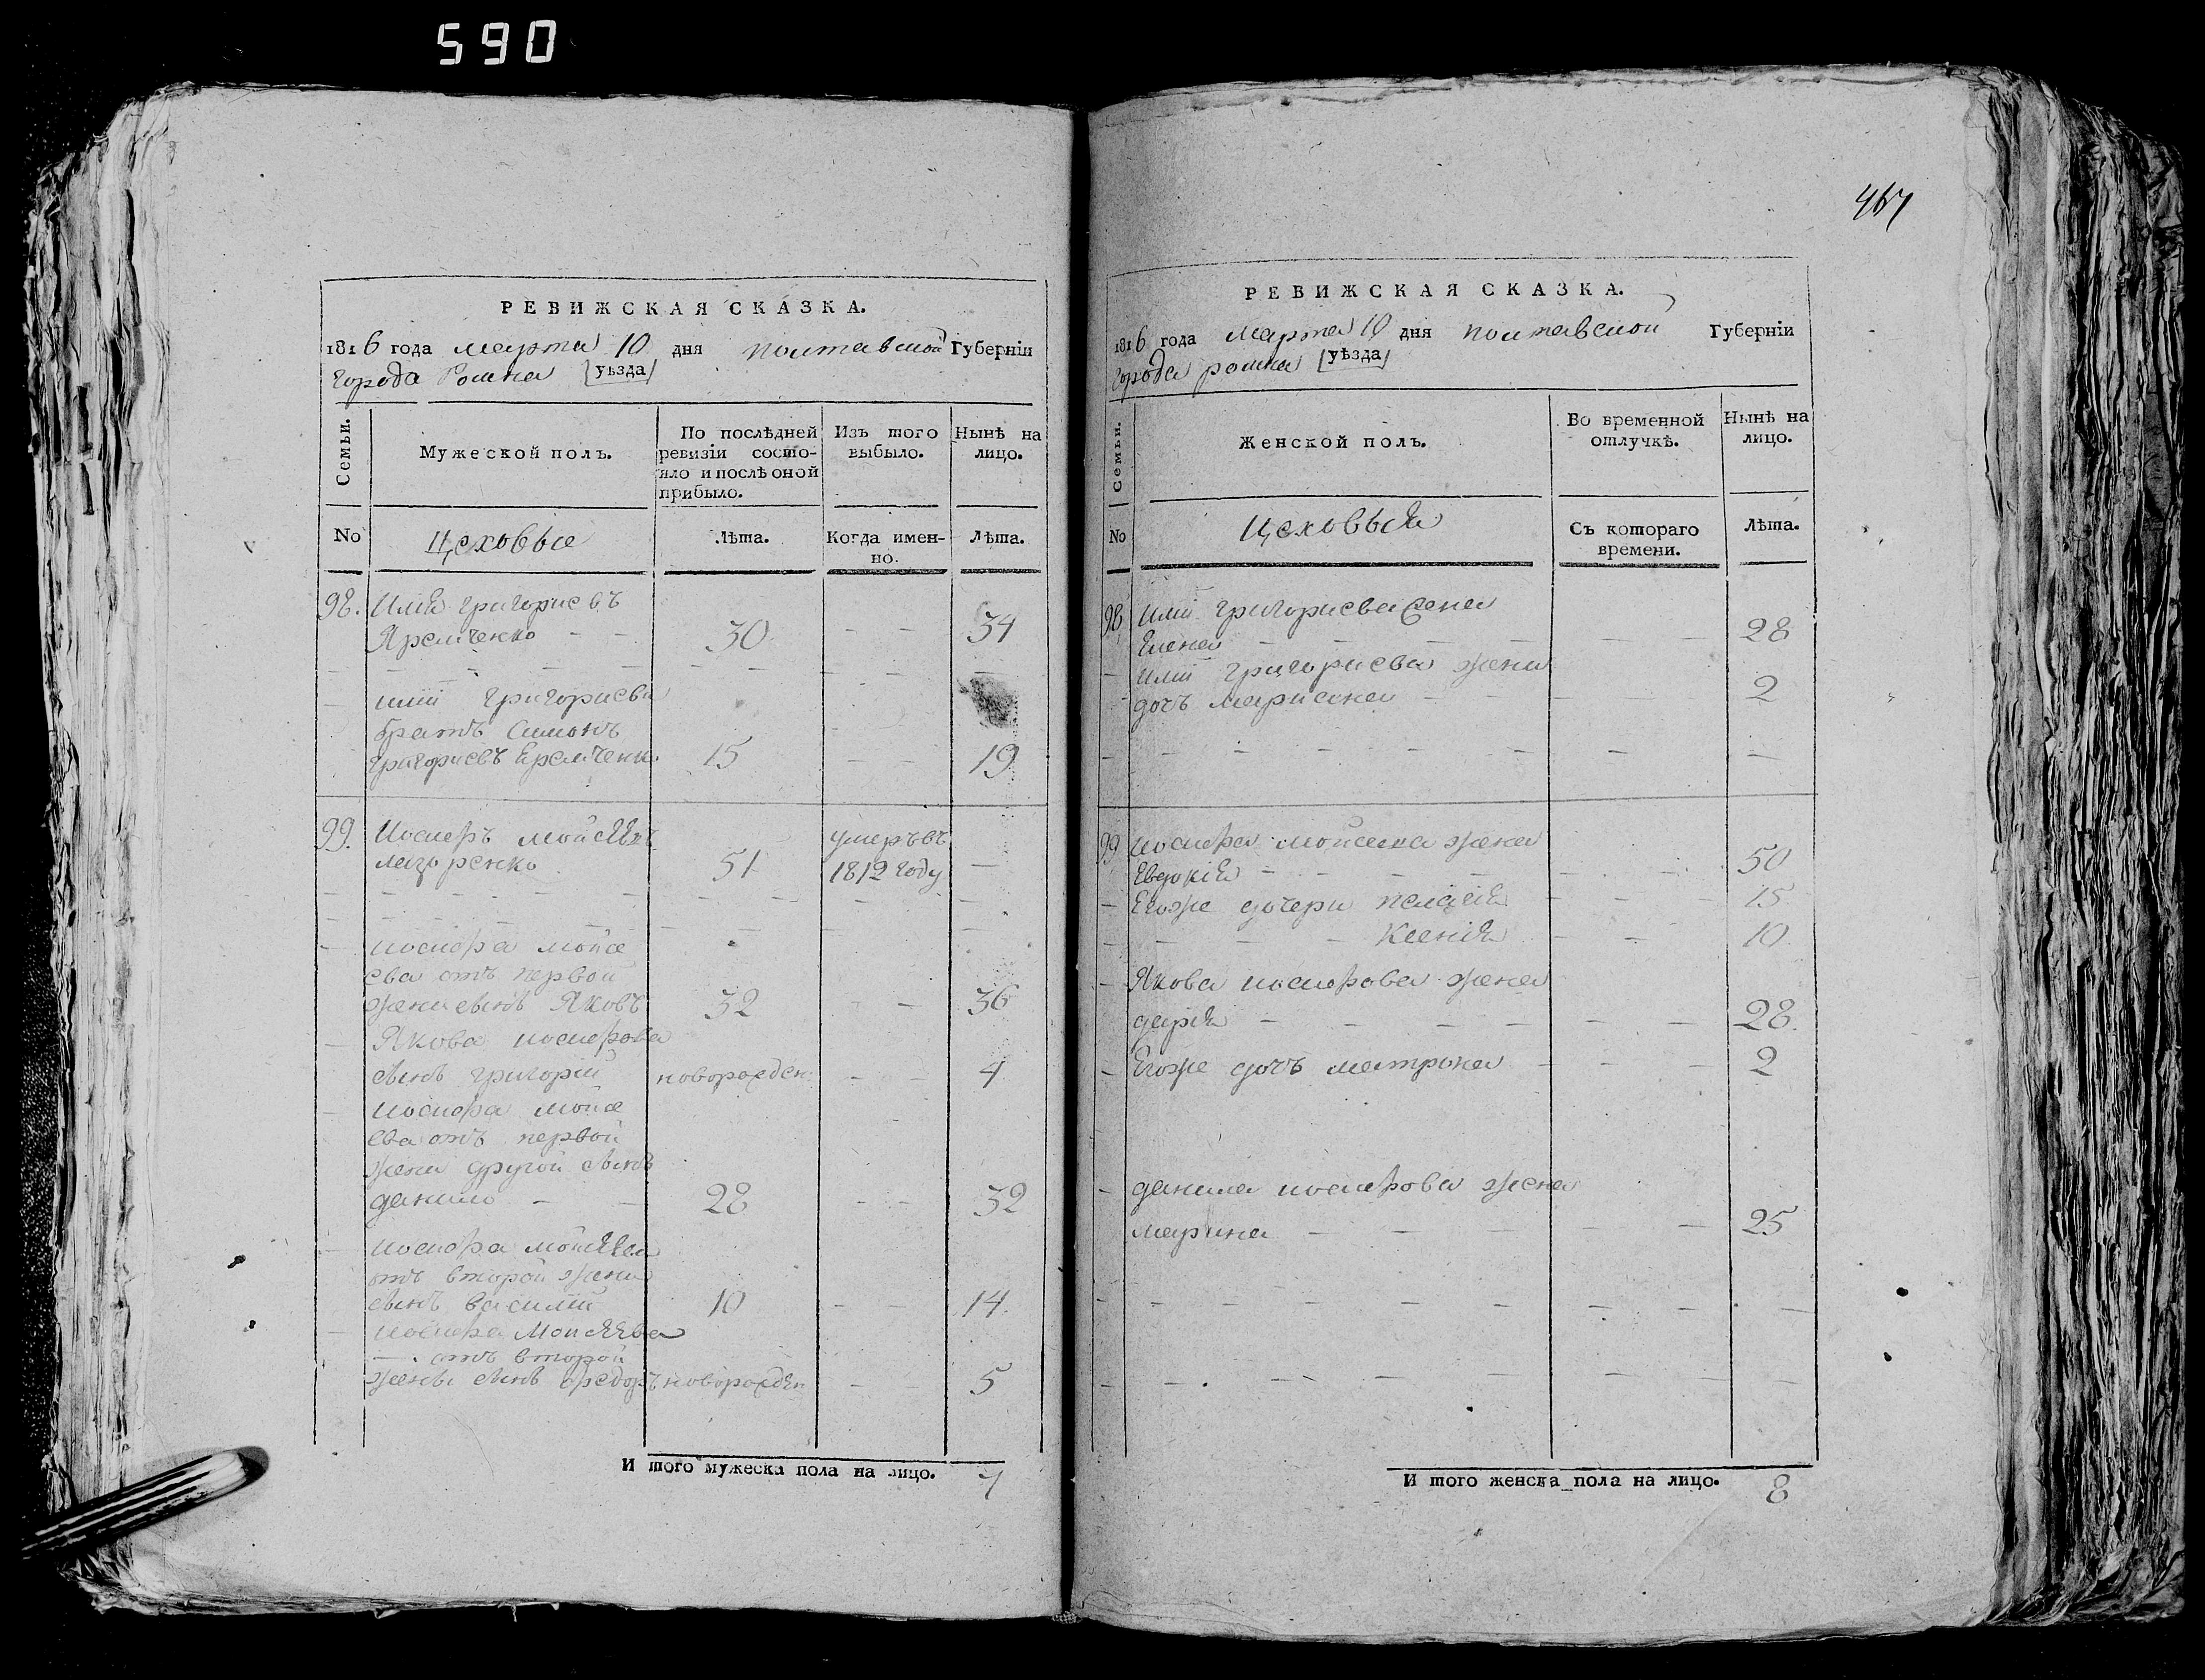 590
РЕВИЖСКАЯ СКАЗКА.
1816 года марта 10 дня полтавской Губерніи
города Ромна [уѣзда]
Семьи.
Мужеской полъ.
По послѣдней ревизіи состояло и послѣ оной прибыло.
Изъ того выбыло.
Нынѣ на лицо.
No
Цеховые
Лѣта.
Когда именно.
Лѣта.
98. Илія григориевъ
Яремченко – – 30 – – 34
иліи григориева
братъ Симонъ
григориевъ Яремченко 15 – – 19
99. Иосифъ
51 умеръ въ
1812 году –
иосифа мойсе
ева отъ первой
жени сынъ Яковъ 32 – – 36
Якова иосифова
сынъ григорій новорожден – – 4
иосифа мойсе
ева отъ первой
жени другой сынъ
данило – – 28 – – 32
иосифа мойсѣева
отъ второй жени
сынъ василій 10 – – 14.
иосифа Мойсѣева
– отъ второй
жены сынъ федоръ новорожден – – 5
И того мужеска пола на лицо. 7
467
РЕВИЖСКАЯ СКАЗКА.
1816 года Марта 10 дня полтавской Губерніи
города ромна [уѣзда]
Семьи.
Женской полъ.
Во временной отлучкѣ.
Нынѣ на лицо.
No
Цеховыя
Съ котораго времени.
Лѣта.
98 иліи григориева жена
Елена – – – – 28
иліи григориева жени
дочь – – 2
99 иосифа жена
Евдокія – – – 50
– Егоже дочери – – – 15
– – – – Ксенія – – 10
– Якова иосифова жена
дарія – – – – – – 28.
– Егоже дочь матрона – – – 2
– данила иосифова жена
марина – – – – – 25
И того женска пола на лицо. 8